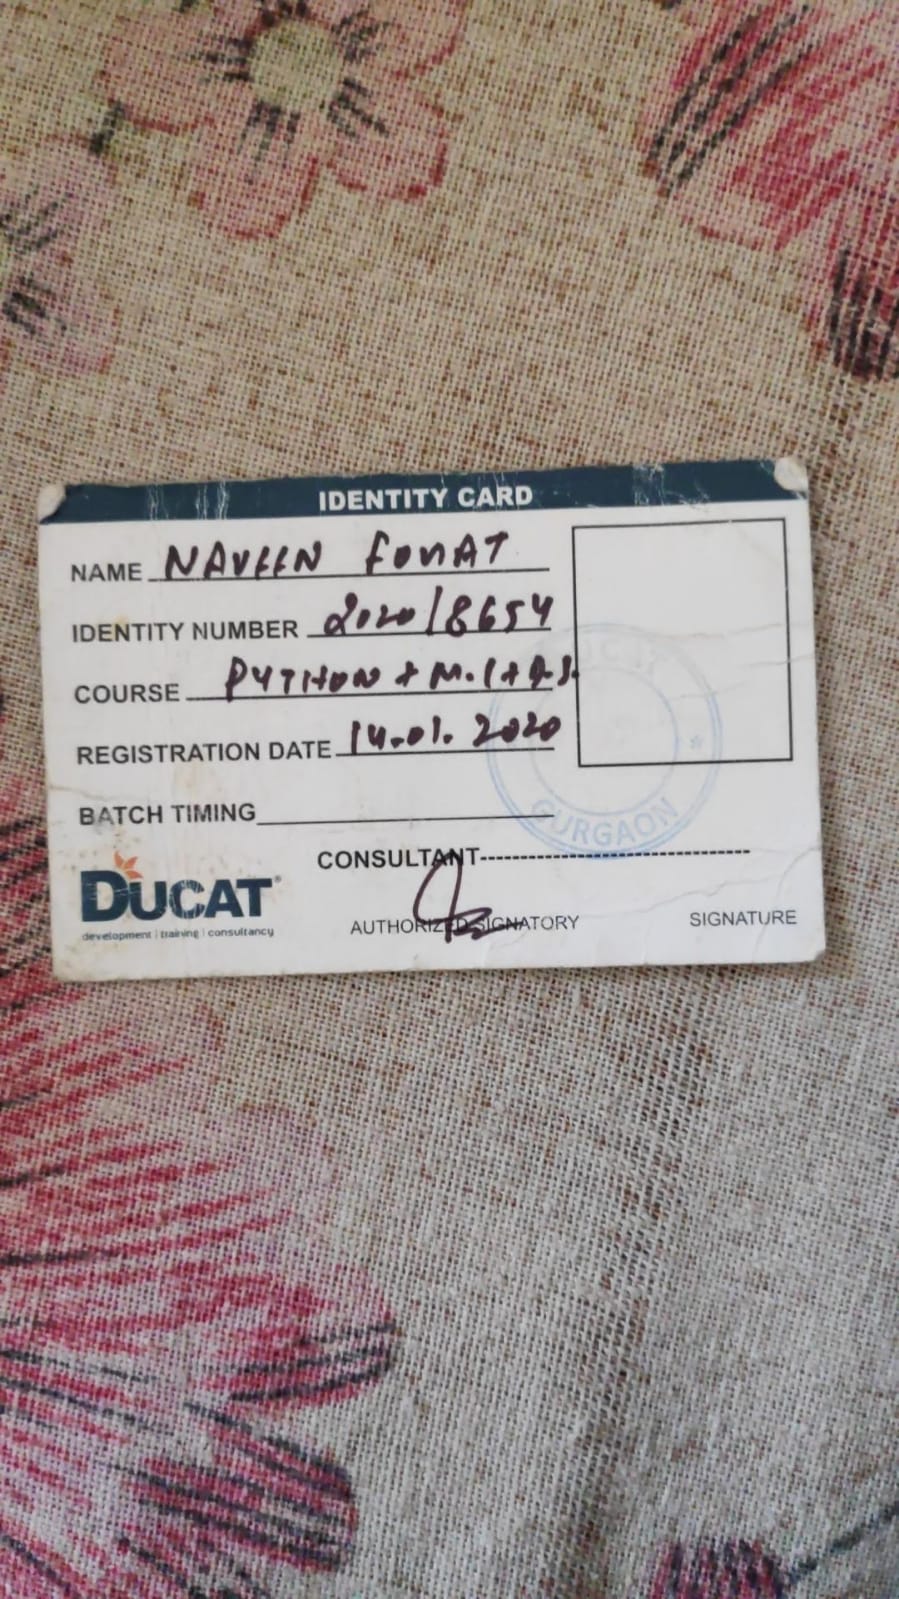 IDENTITY CARD
NAME NAVEEN
IDENTITY NUMBER 2020/8654
COURSE PYTHON +
REGISTRATION DATE 14.01.2020
BATCH TIMING
CONSULTANT
DUCAT
development | training | consultancy
AUTHORIZED SIGNATORY
SIGNATURE
GURGAON